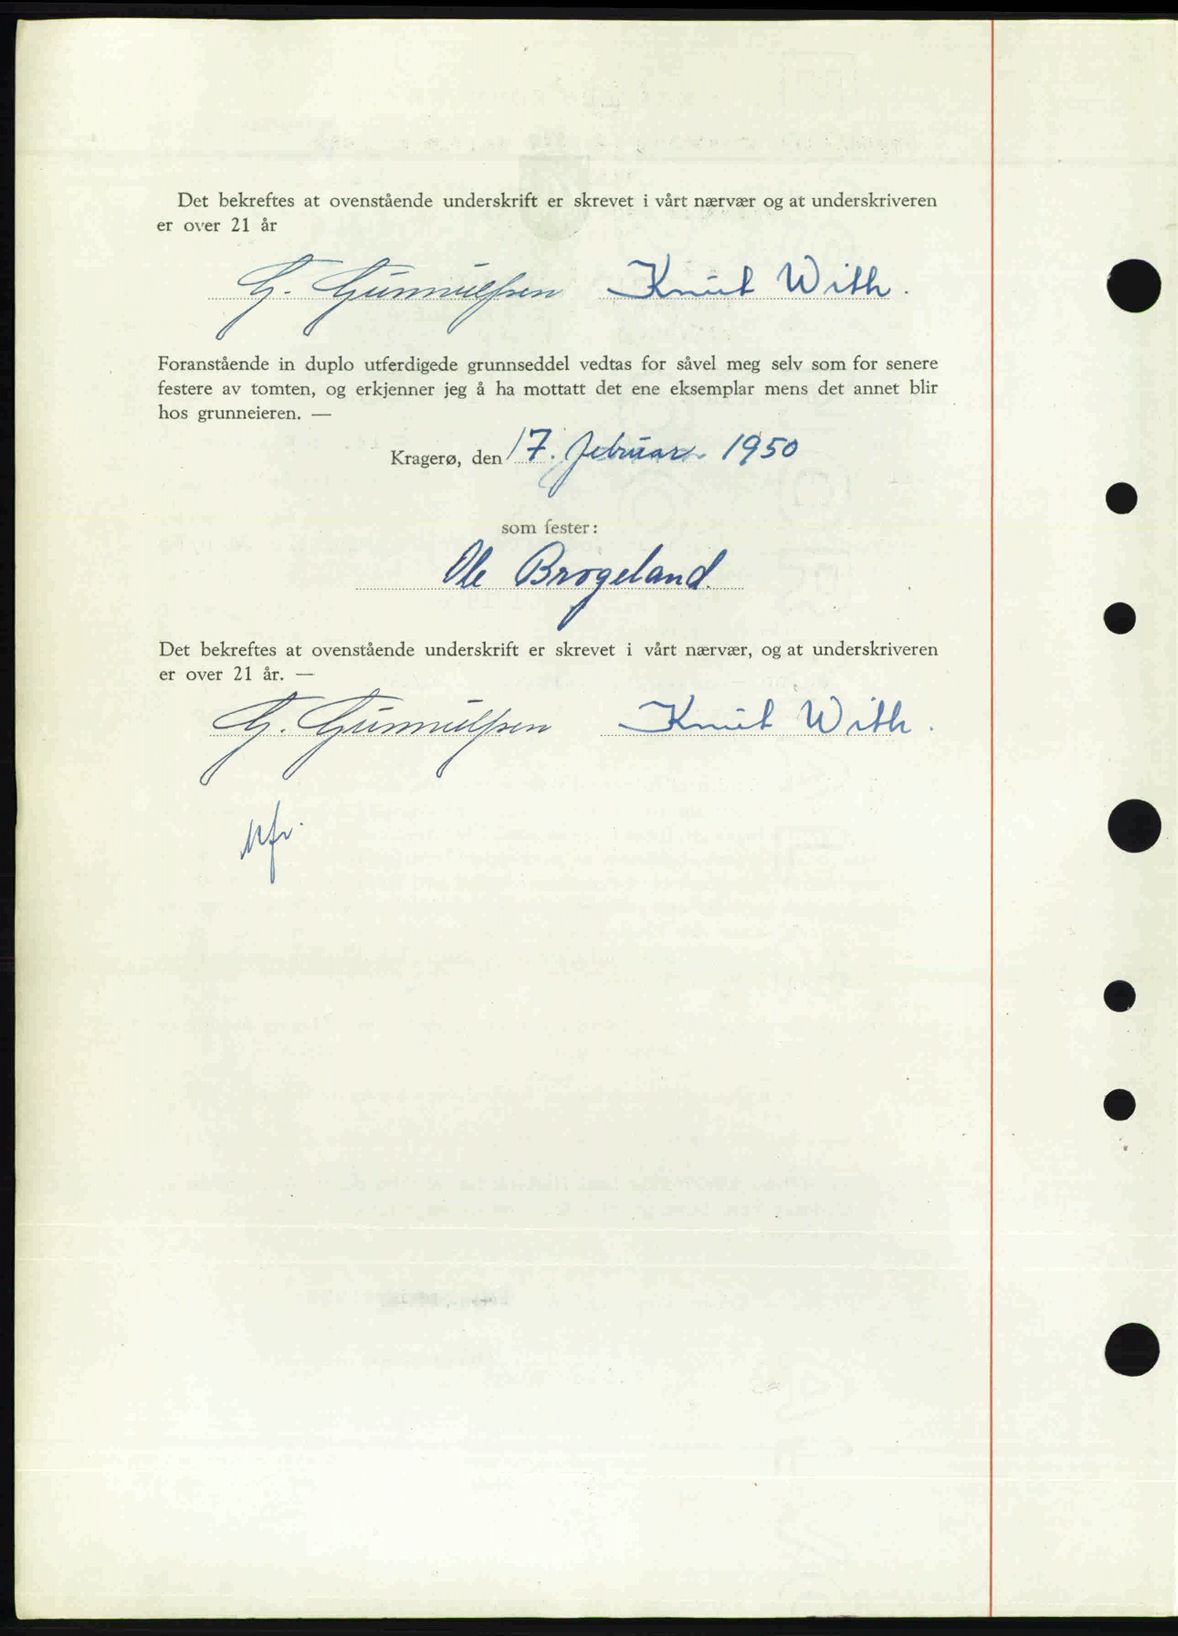 Det bekreftes at ovenstående underskrift er skrevet i vårt nærvær og at underskriveren
er over 21 år
G. Gunnulfsen Knut With.
Foranstående in duplo utferdigede grunnseddel vedtas for såvel meg selv som for senere
festere av tomten, og erkjenner jeg å ha mottatt det ene eksemplar mens det annet blir
hos grunneieren. —
Kragerø, den 17. februar 1950
som fester:
Ole Brøgeland.
Det bekreftes at ovenstående underskrift er skrevet i vårt nærvær, og at underskriveren
er over 21 år. —
G. Gunnulfsen Knut With.